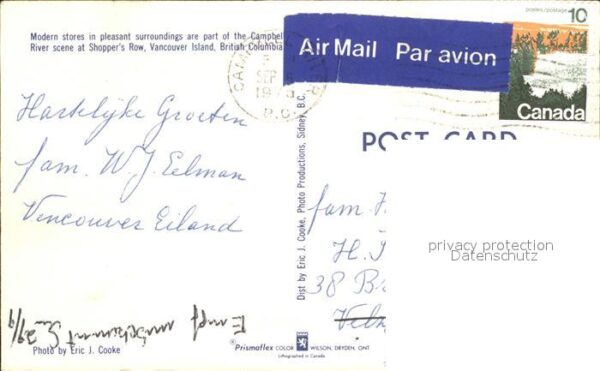 Modern stores in pleasant surroundings are part of the Campbell
River scene at Shopper's Row, Vancouver Island, British Columbia
Air Mail Par avion
postes/postage 10
Canada
SEP
197
B.C.
POST CARD
Hartelijke Groeten
fam. W J. Eelman
Vencouver Eiland
fam H.
H. 
38 B
Veln
privacy protection
Datenschutz
Dist by Eric J. Cooke, Photo Productions, Sidney, B.C.
Empf
29/9
Photo by Eric J. Cooke
Prismaflex COLOR WILSON, DRYDEN, ONT
Lithographed in Canada